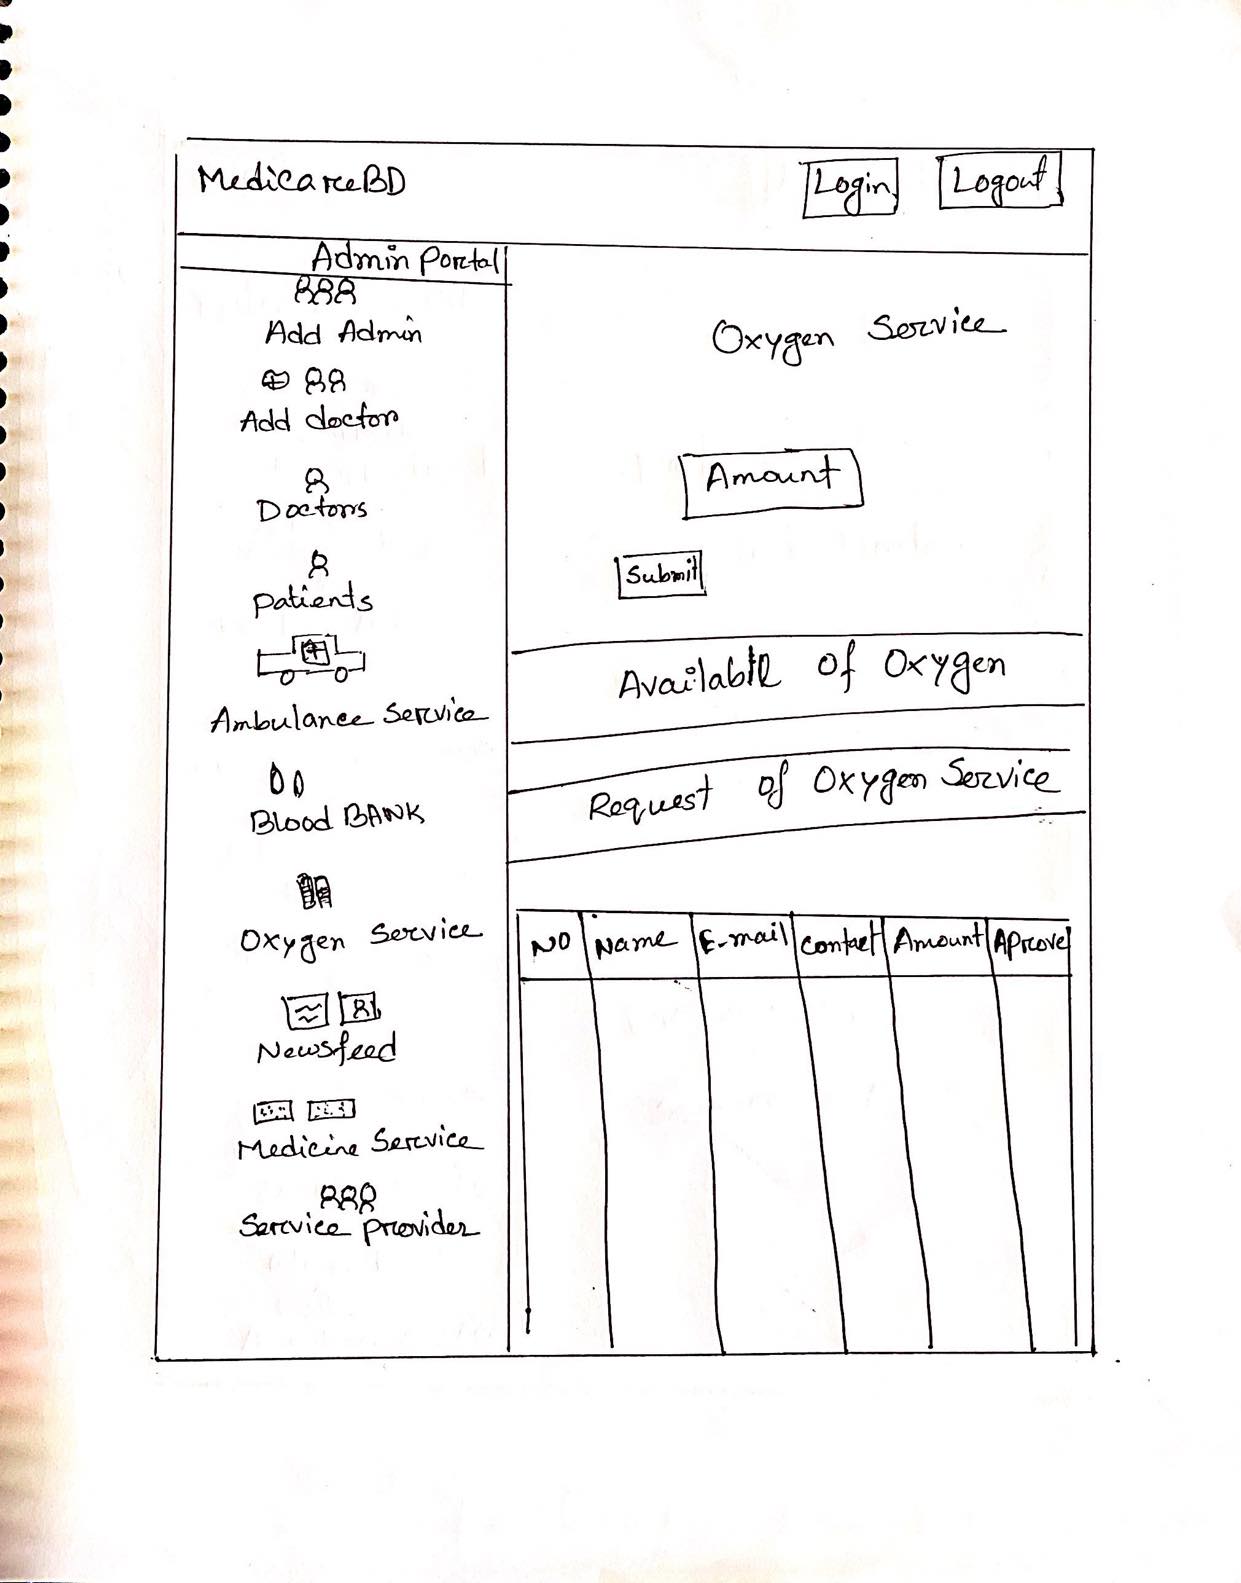 MedicareBD
Login
Logout
Admin Portal
Add Admin
Add doctor
Doctors
Patients
Ambulance Service
Blood BANK
Oxygen Service
Newsfeed
Medicine Service
Service provider
Oxygen Service
Amount
Submit
Availabtle of Oxygen
Request of Oxygen Service
NO Name E-mail Contact Amount Aprove